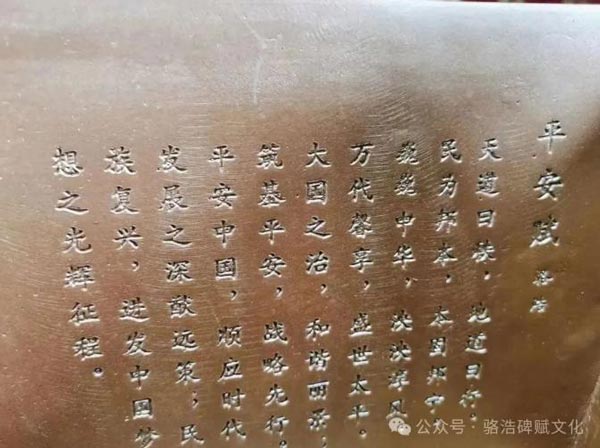 平安赋 骆浩
天道曰秩,地道曰行,
民为邦本,本固邦宁
中华,泱泱风
万代馨享,盛世太平。
大国之治,和谐丽
筑基平安,战略先行。
平安中国,顺应时代
发展之深猷远策,民
族复兴,迸发中国梦
想之光辉征程。
公众号:骆浩碑赋文化